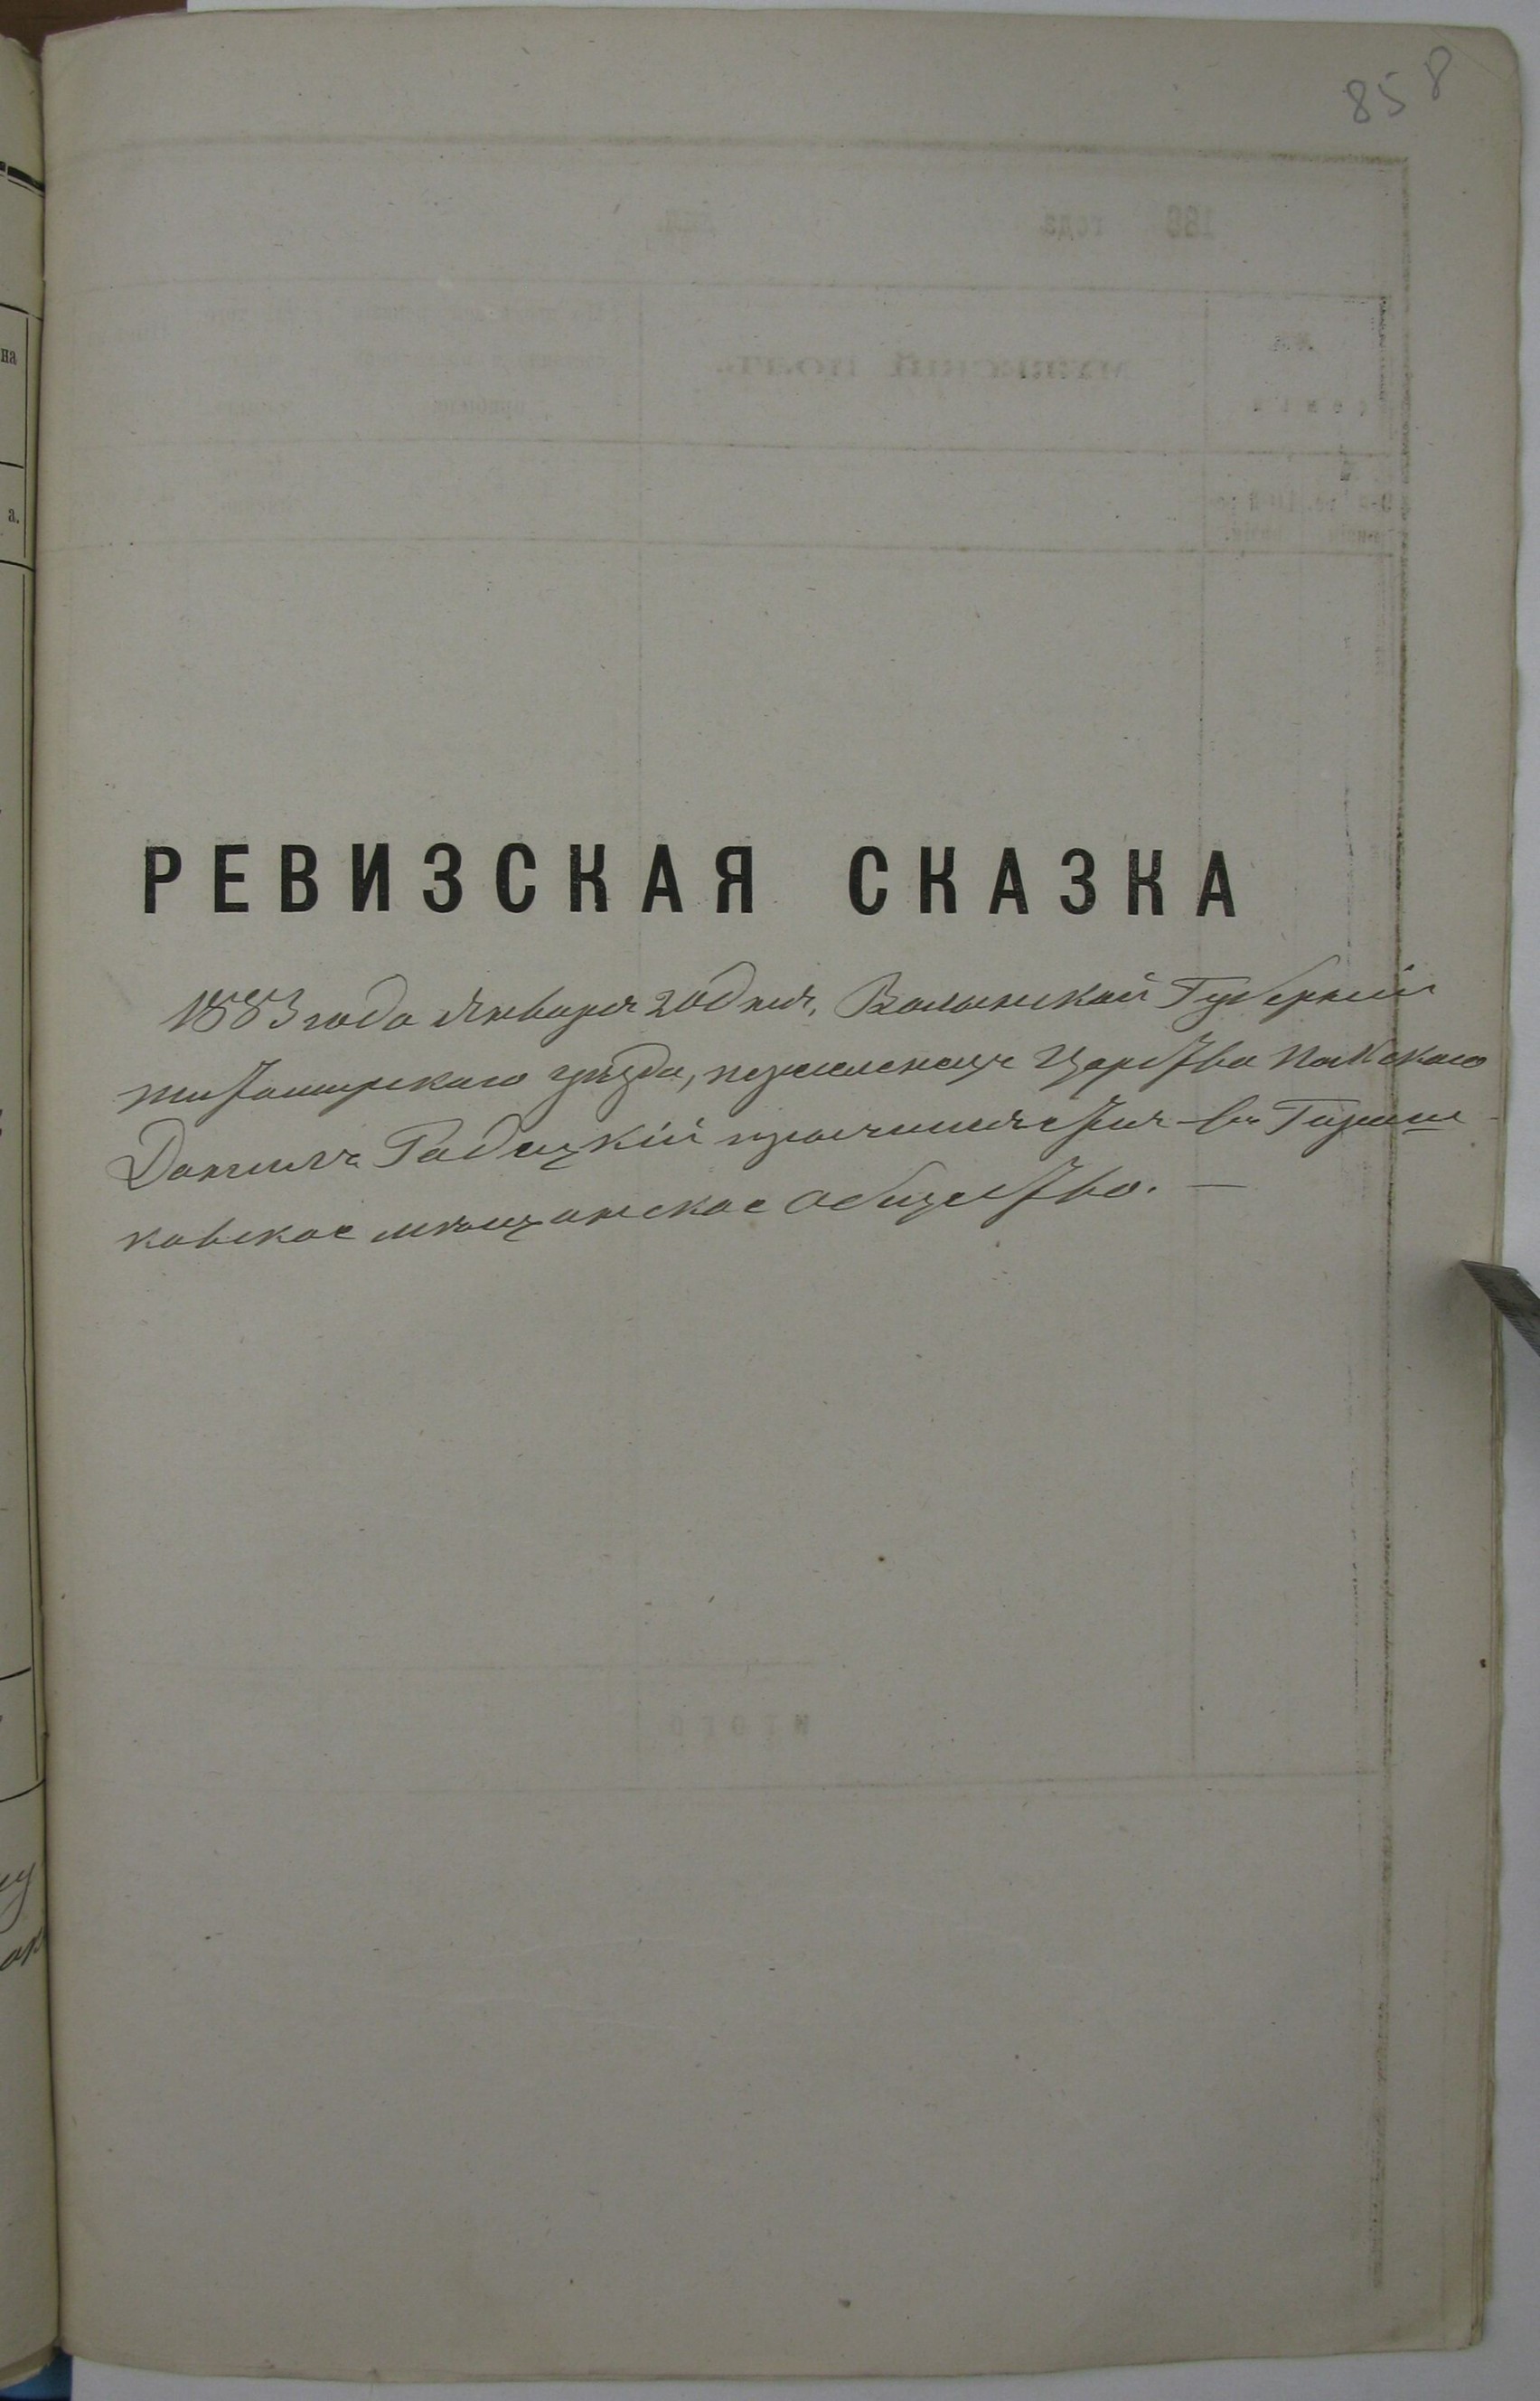 858
РЕВИЗСКАЯ СКАЗКА
1883 года Января 20 дня, Волынской Губернии
Житомирскаго уѣзда, переселенецъ Царства Польскаго
Даніилъ Радецкій причисляется въ Горош-
ковское мѣщанское общество. —
на
а.